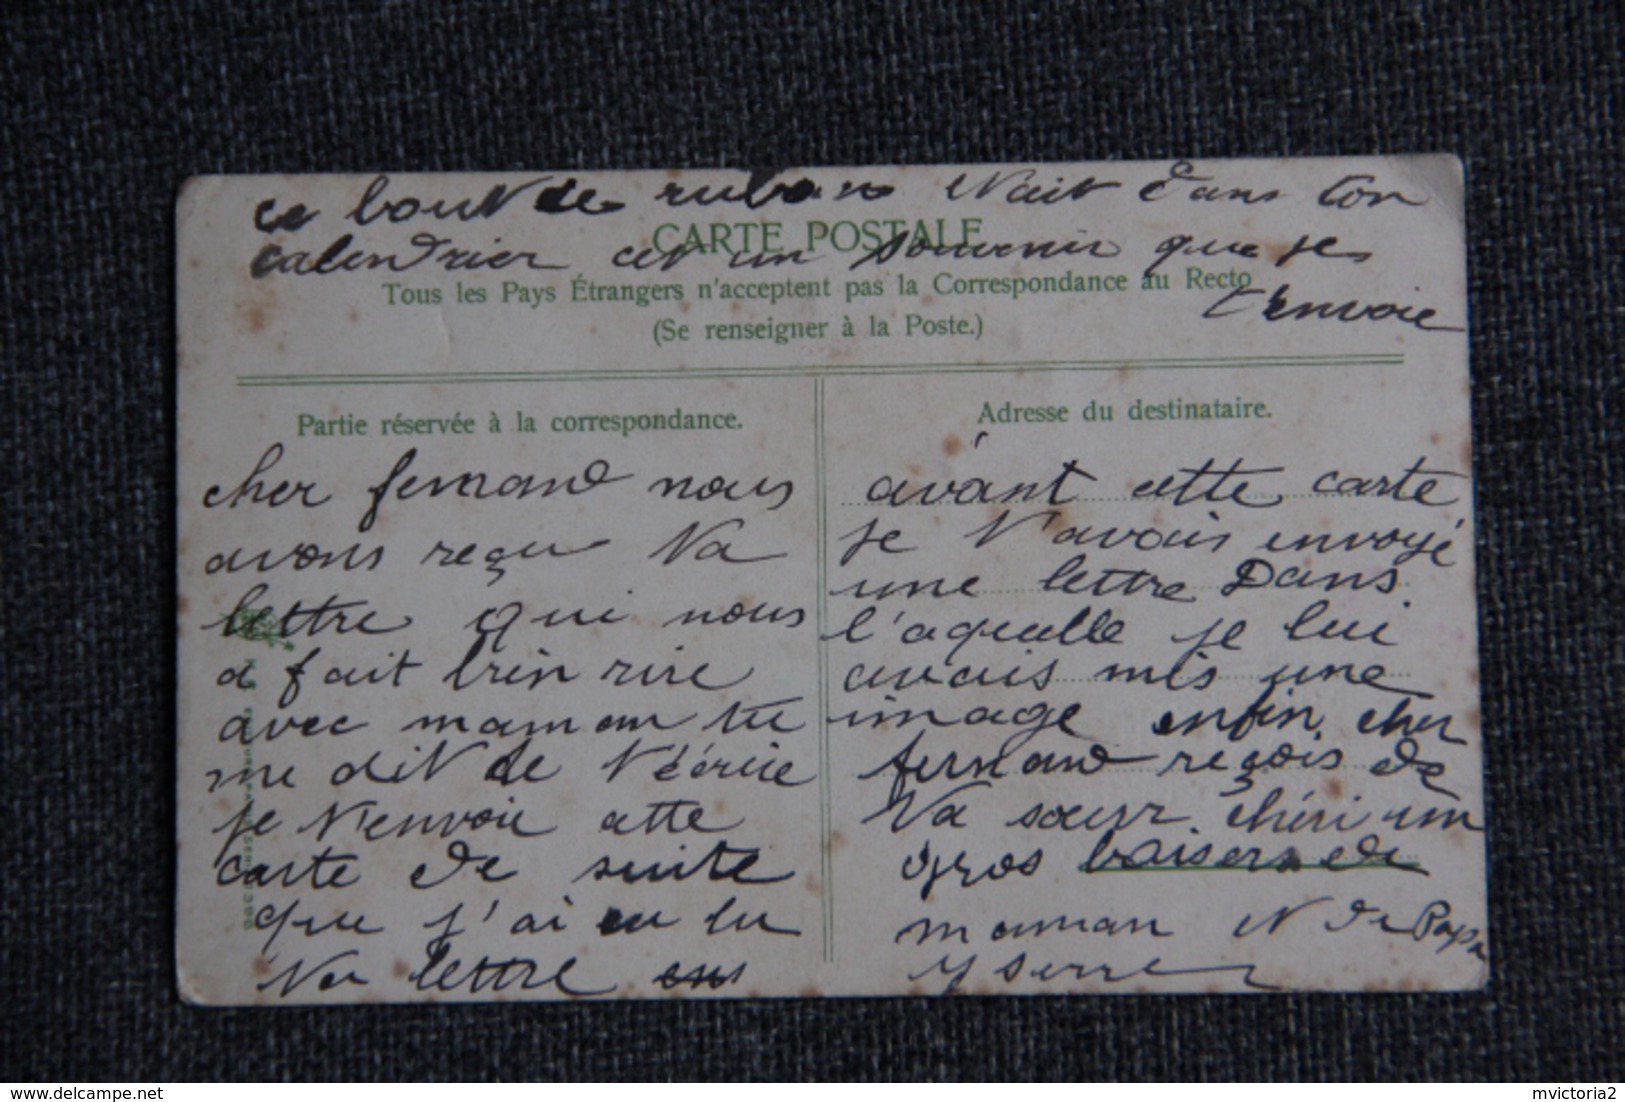 ce bout de ruban était dans ton
calendrier cet un souvenir que je
t'envoie
CARTE POSTALE
Tous les Pays Étrangers n'acceptent pas la Correspondance au Recto
(Se renseigner à la Poste.)
Partie réservée à la correspondance.
cher fernand nous
avons reçu ta
lettre qui nous
a fait bien rire
avec maman tu
me dit de t'écrire
je t'envoie cette
carte de suite
que j'ai eu lu
ta lettre
Adresse du destinataire.
avant cette carte
je t'avais envoyé
une lettre Dans
l'aquelle je lui
avais mis une
image enfin cher
fernand reçois de
ta sœur chéri un
gros baisers de
maman et de Papa
yserre
delcampe.net
mvictoria2